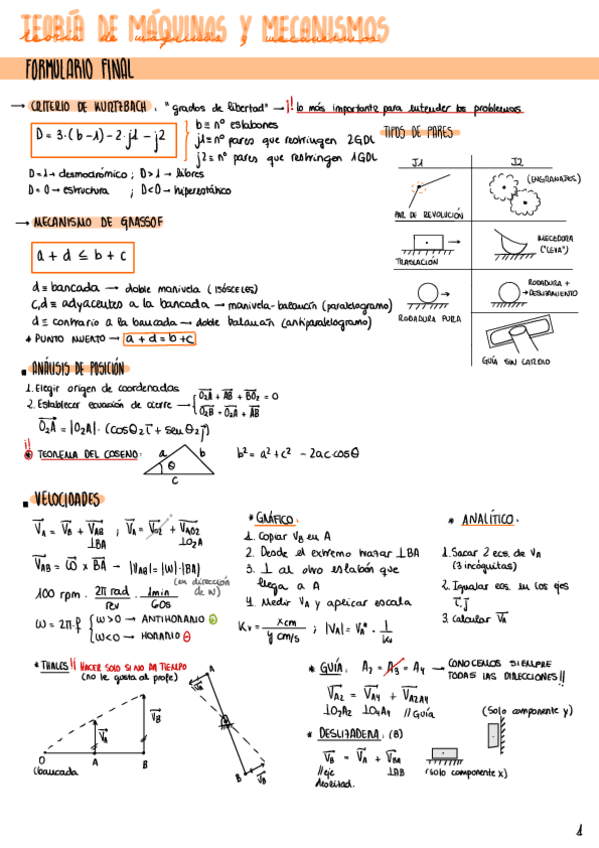 TEORÍA DE MÁQUINAS Y MECANISMOS
FORMULARIO FINAL
→ CRITERIO DE KURTZBACH: "grados de libertad" → ¡! lo más importante para entender los problemas
D = 3·(b-1) - 2·j1 - j2
b ≡ nº eslabones
j1 ≡ nº pares que restringen 2GDL
j2 ≡ nº pares que restringen 1GDL
D=1 → desmodrómico ; D>1 → libres
D=0 → estructura ; D<0 → hiperestático
TIPOS DE PARES
J1
J2
PAR DE REVOLUCIÓN
(ENGRANAJES)
TRASLACIÓN
MECEDORA
("LEVA")
RODADURA PURA
RODADURA +
DESLIZAMIENTO
GUÍA SIN CABECEO
→ MECANISMO DE GRASSOF
a + d ≤ b + c
d ≡ bancada → doble manivela (isósceles)
c,d ≡ adyacentes a la bancada → manivela-balancín (paralelogramo)
d ≡ contrario a la bancada → doble balancín (antiparalelogramo)
* PUNTO MUERTO → a + d = b + c
ANÁLISIS DE POSICIÓN
1. Elegir origen de coordenadas
2. Establecer ecuación de cierre → O2A + AB + BO2 = 0
O2B = O2A + AB
O2A = |O2A|· (cosθ2 i + senθ2 j)
¡!
TEOREMA DEL COSENO:
a
b
θ
c
b² = a² + c² - 2ac·cosθ
VELOCIDADES
VA = VB + VAB ; VA = VO2 + VAO2
⊥BA
⊥O2A
VAB = ω × BA → |VAB| = |ω|·|BA|
(en dirección de ω)
100 rpm · 2π rad / rev · 1min / 60s
ω = 2π·f
ω>0 → ANTIHORARIO ⊕
ω<0 → HORARIO ⊖
* GRÁFICO:
1. Copiar VB en A
2. Desde el extremo trazar ⊥BA
3. ⊥ al otro eslabón que
llega a A
4. Medir VA y aplicar escala
Kv = x cm / y cm/s ; |VA| = VA* · 1/Kv
* ANALÍTICO:
1. Sacar 2 ecs. de VA
(3 incógnitas)
2. Igualar ecs. en los ejes
i, j
3. Calcular VA
* THALES ¡! HACER SOLO SI NO DA TIEMPO
(no le gusta al profe)
O
(bancada
A
B
VA
VB
A
VA
B
VB
* GUÍA: A2 = A3 = A4 → CONOCEMOS SIEMPRE
TODAS LAS DIRECCIONES!!
VA2 = VA4 + VA2A4
⊥O2A2 ⊥O4A4 //Guía
(Solo componente y)
* DESLIZADERA: (B)
VB = VA + VBA
//eje ⊥AB
(solo componente x)
1